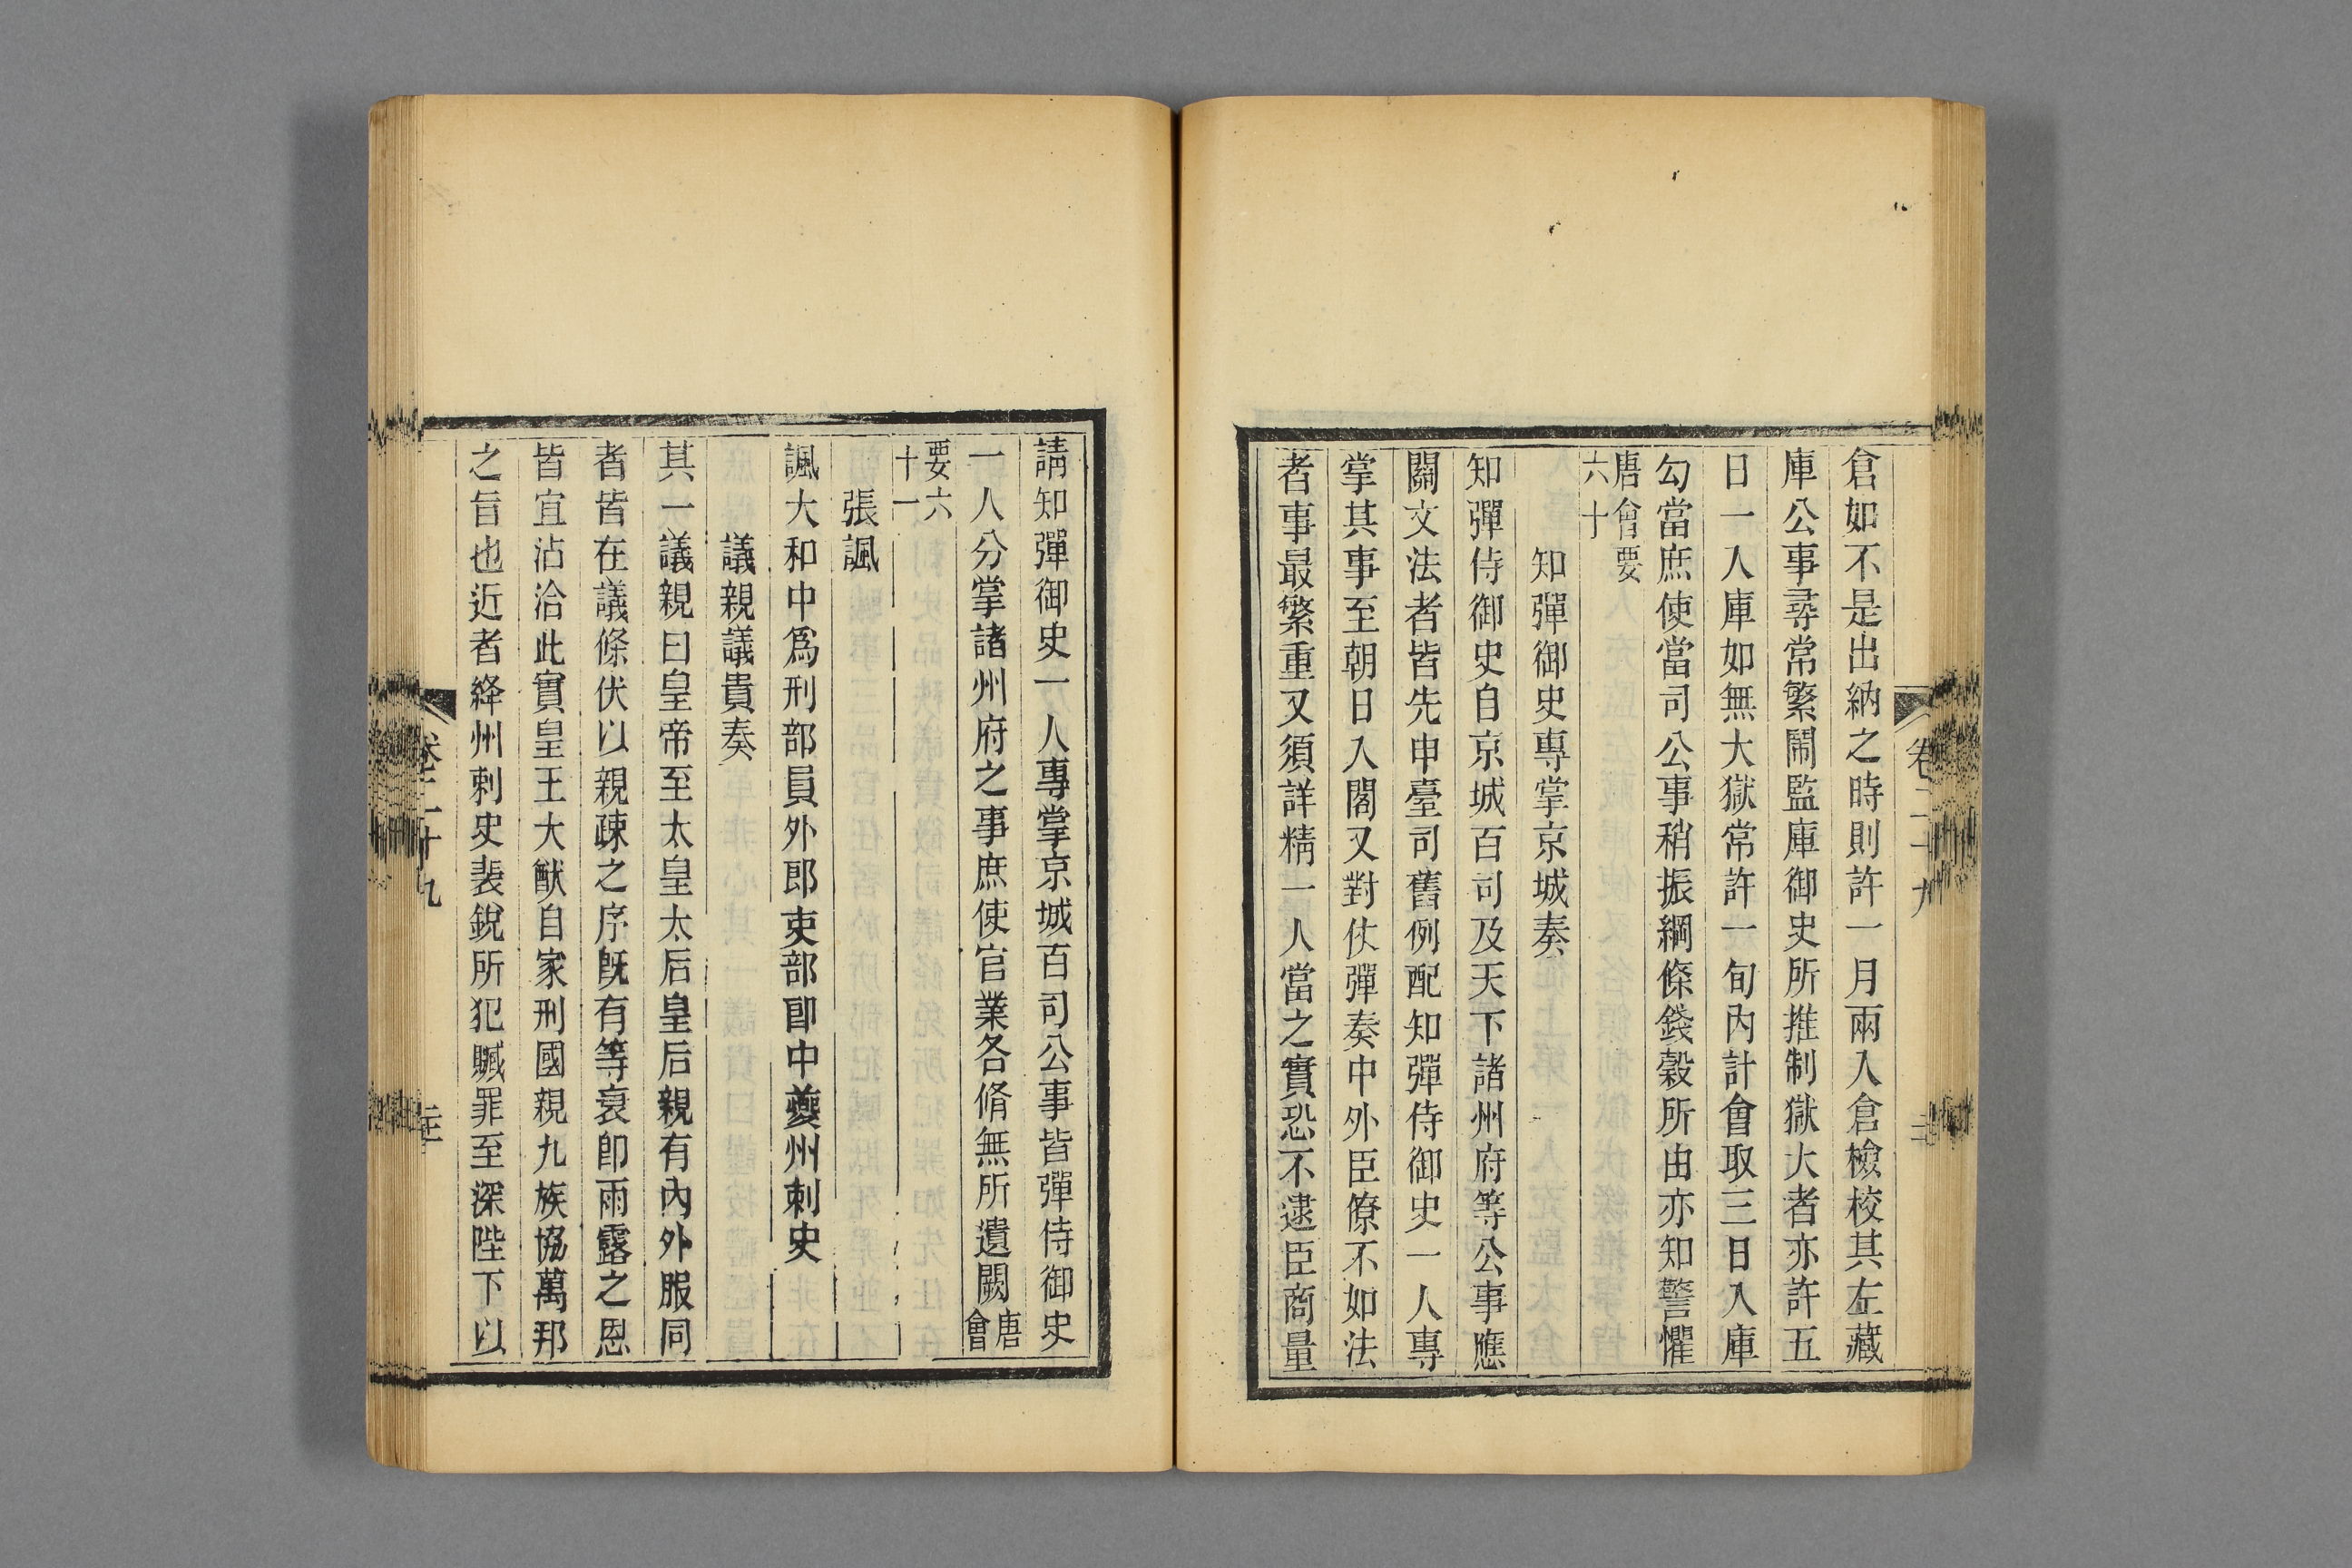 倉如不是出納之時則許一月兩入倉檢校其左藏
庫公事尋常繁鬧監庫御史所推制獄大者亦許五
日一入庫如無大獄常許一旬內計會取三日入庫
勾當庶使當司公事稍振綱條錢穀所由亦知警懼
唐會要
六十
知彈御史專掌京城奏
知彈侍御史自京城百司及天下諸州府等公事應
關文法者皆先申臺司舊例配知彈侍御史一人專
掌其事至朝日入閣又對仗彈奏中外臣僚不如法
者事最繁重又須詳精一人當之實恐不逮臣商量
請知彈御史一人專掌京城百司公事皆彈侍御史
一人分掌諸州府之事庶使官業各脩無所遺闕唐
會
要六
十一
張諷
諷大和中爲刑部員外郎吏部郎中夔州刺史
議親議貴奏
其一議親曰皇帝至太皇太后皇后親有內外服同
者皆在議條伏以親疎之序旣有等衰卽雨露之恩
皆宜沾洽此實皇王大猷自家刑國親九族協萬邦
之旨也近者絳州刺史裴銳所犯贓罪至深陛下以
卷二十九